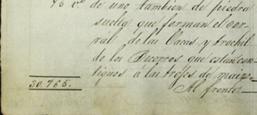 de uno tambien de piedra
suelta que forman el cor-
ral de las Vacas y trochil
de los Puercos que están con-
tiguos á las trojes de
30.765.
Al frente